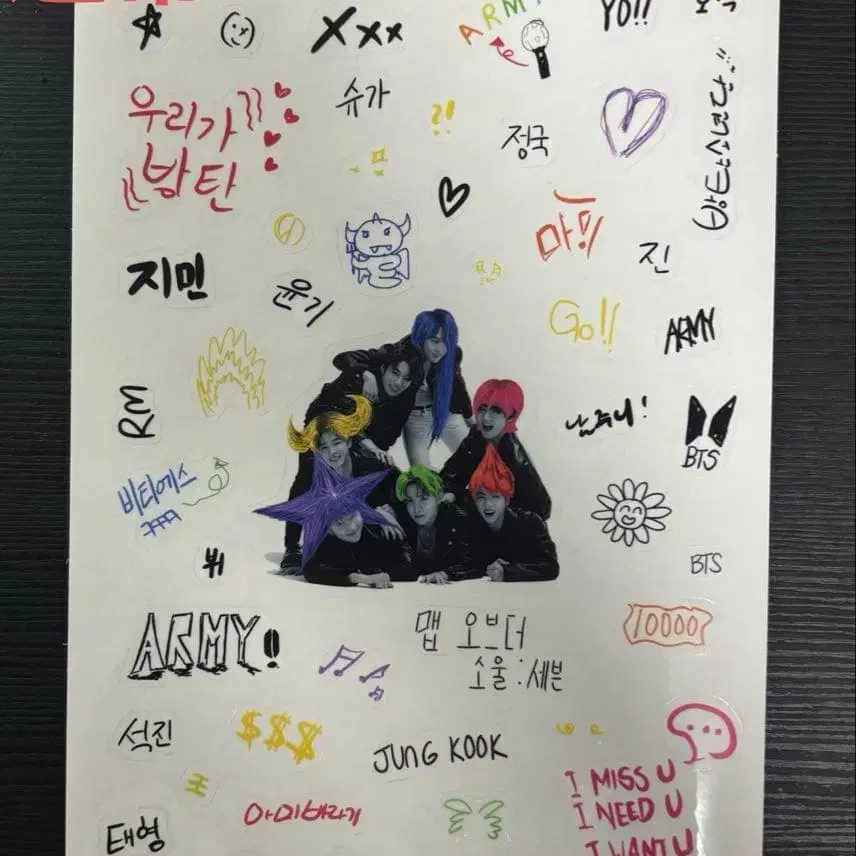 Xxx
ARMY
YO!!
슈가
우리가
방탄
?!
정국
방탄소년단
진
지민
윤기
Go!!
ARMY
RM
BTS
비티에스
ㅋㅋㅋ
뷔
BTS
ARMY!
맵 오브더
소울:세븐
10000
석진
$$$
JUNG KOOK
I MISS U
I NEED U
I WANT U
아미바라기
태형